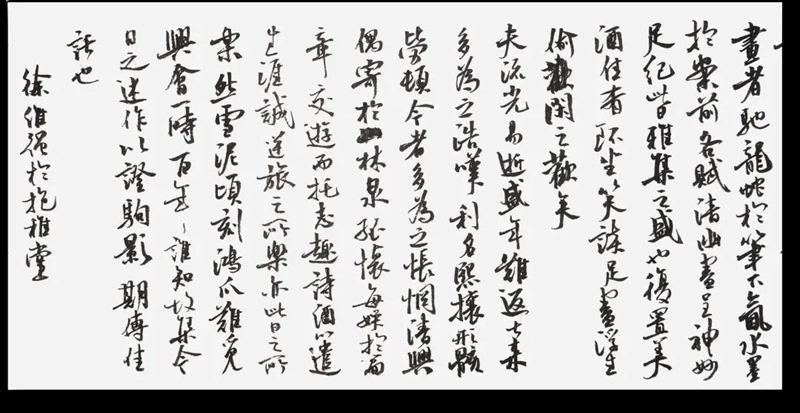 畫者馳龍蛇於筆下氤水墨
於案前各賦清幽盡呈神妙
足紀皆雅集之盛也復置美
酒佳肴環坐笑談足盡浮生
偷歡閑之歡矣
夫流光易逝盛年難返古來
多為之浩嘆利名熙攘形骸
勞頓今者多為之悵惘清興
偶寄於林泉雅懷每娛於篇
章交遊而托志趣詩酒以遣
生涯誠逆旅之所樂亦此日之所
樂然雪泥頃刻鴻爪難覓
興會一時百年誰知故集今
日之述作以證駒影期傳佳
話也
徐維強於抱雅堂